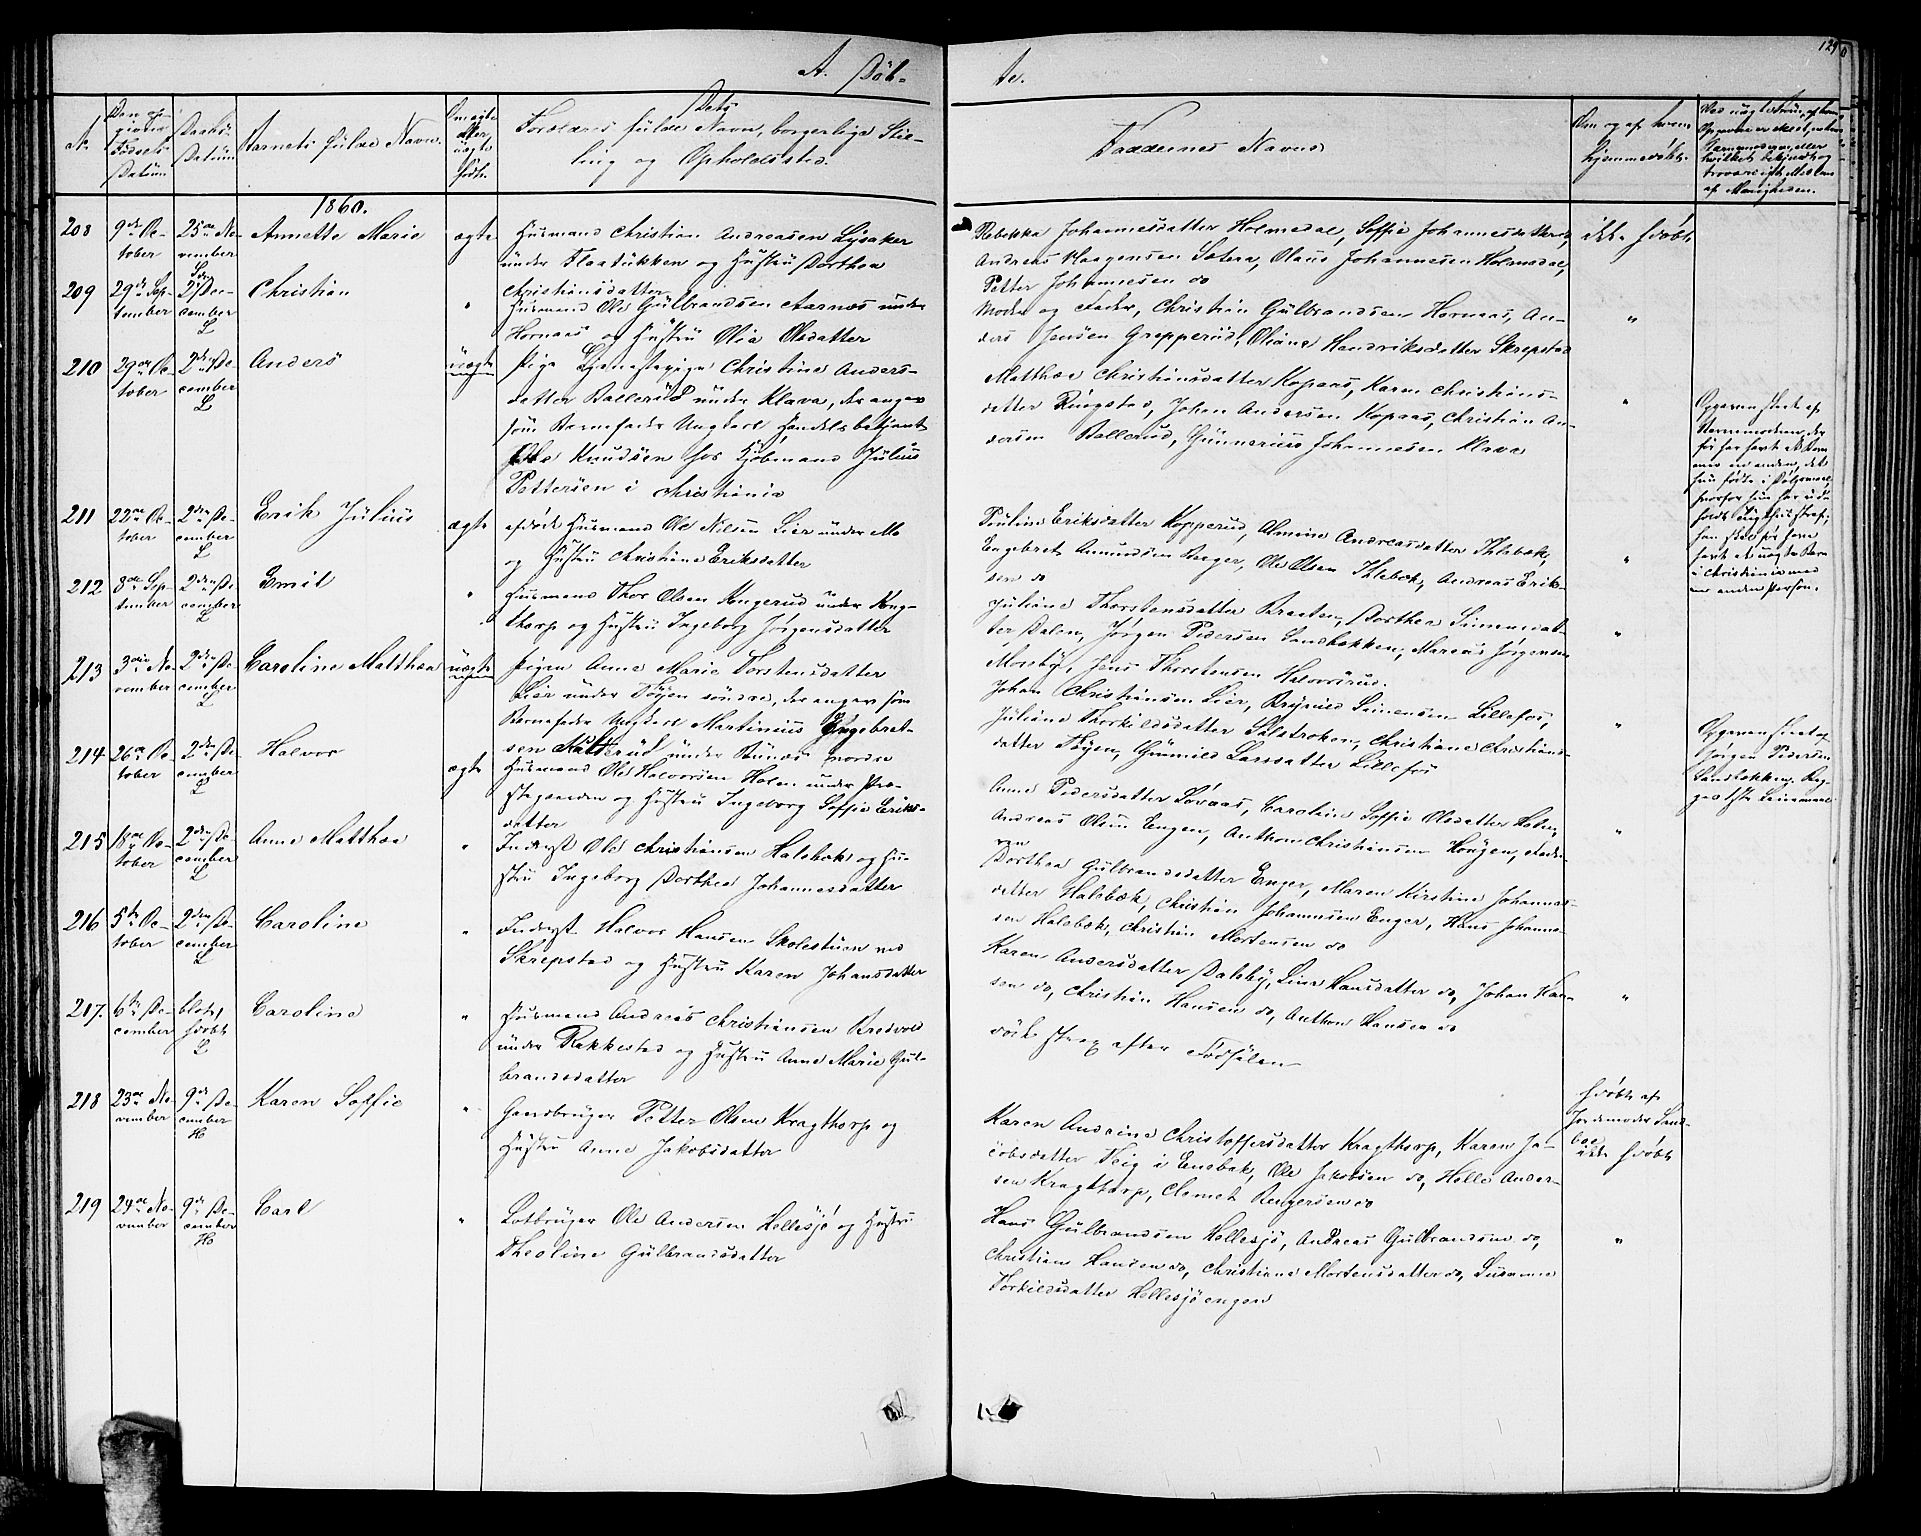 A. Døb-
te.
129
No
Den op-
givne
Fødsels
Datum
Daabs-
Datum
Barnets fulde Navn.
Om ægte
eller
uægte
født.
Dets
Forældres fulde Navn, borgerlige Stil-
ling og Opholdssted.
Faddernes Navne
Om og af hvem
hjemmedøbt.
1860.
208
9de Oc-
tober
25de No-
vember
Annette Marie
ægte
Huusmand Christian Andreasen Lysaker
under Flaatukken og Hustru Dorthea
Christiansdatter
Rebekka Johannesdatter Holmedal, Soffie Johannesdatter do,
Andreas Haagensen Sætern, Olaus Johannesen Holmedal,
Petter Johannesen do
ikke hjdøbt
209
29de Sep-
tember
2den De-
cember
L
Christian
"
Huusmand Ole Gulbrandsen Aarnæs under
Hornaas og Hustru Olia Olsdatter
Moder og Fader, Christian Gulbrandsen Hornaas, An-
ders Jensen Grepperud, Oliane Hendriksdatter Skrepstad
"
210
29de Oc-
tober
2den De-
cember
L
Anders
uægte
Pige Tjenestepige Christine Anders-
datter Ballerud under Klava, der angav
som Barnefader Ungkarl Handelsbetjent
Ole Knudsen hos Kjøbmand Julius
Pettersen i Christiania
Matthea Christiansdatter Kopaas, Karen Christians-
datter Ringstad, Johan Andersen Kopaas, Christian An-
dersen Ballerud, Gunnerius Johannesen Klava
"
Opgaven skeet af
Barnemoderen, der
før har havt et Barn
med en anden, det
hun fødte i Dølgsmaal,
hvorfor hun har ud-
holdt Tugthusstraf;
hun skal før have
havt et uægte Barn
i Christiania med
en anden Person.
211
22de Oc-
tober
2den De-
cember
L
Erik Julius
ægte
afdøde Huusmand Ole Nilsen Lier under Mo
og Hustru Christiane Eriksdatter
Pauline Eriksdatter Kopperud, Almine Andreasdatter Ihlebæk,
Engebret Amundsen Berger, Ole Olsen Ihlebæk, Andreas Erik-
sen do
"
212
8de Sep-
tember
2den De-
cember
L
Emil
"
Huusmand Thor Olsen Kongerud under Krag-
thorp og Hustru Ingeborg Jørgensdatter
Juliane Thorstensdatter Braaten, Dorthea Simensdat-
ter Dalen, Jørgen Pedersen Sandbakken, Mareus Jørgensen
Moseby, Jens Thorstensen Halvorsrud.
"
213
3die No-
vember
2den De-
cember
L
Caroline Matthea
uægte
Pigen Anne Marie Torstensdatter
Lier under Tøyen søndre, der angav som
Barnefader Ungkarl Martinius Engebret-
sen Kulterud under Bunæs nordre
Johan Christiansen Lier, Brynild Simensen Lillefos,
Juliane Thorkildsdatter Solstroken, Christiane Christians-
datter Tøyen, Gunnild Larsdatter Lillefos
"
Opgaven skeet af
Jørgen Pedersen
Sandbakken,
214
26de Oc-
tober
2den De-
cember
L
Halvor
ægte
Huusmand Ole Halvorsen Holen under Præ-
stegaarden og Hustru Ingeborg Soffie Eriks-
datter
Anne Pedersdatter Løvaas, Carolein Soffie Olsdatter Holen,
Andreas Olsen Engen, Anthon Christiansen Hougen, Fade-
ren
"
215
18de Oc-
tober
2den De-
cember
L
Anne Matthea
"
Inderst Ole Christiansen Halsbæk og Hu-
stru Ingeborg Dorthea Johannesdatter
Dorthea Gulbrandsdatter Enger, Maren Kirstine Johannes-
datter Halsbæk, Christian Johannesen Enger, Hans Johanne-
sen Halsbæk, Christian Mortensen do
216
5te Oc-
tober
2den De-
cember
L
Caroline
"
Inderst Halvor Hansen Skolestuen ved
Skrepstad og Hustru Karen Johansdatter
Karen Andersdatter Dalsby, Lina Hansdatter do, Johan Han-
sen do, Christian Hansen do, Anthon Hansen do
"
217.
6te De-
cember
blot
hjdøbt
L
Caroline
"
Huusmand Andreas Christiansen Bredvold
under Rakkestad og Hustru Anne Marie Gul-
brandsdatter
døde strax efter Fødselen
hjdøbt af
Jordemoder Sand-
bæk
218
23de No-
vember
9de De-
cember
H
Karen Soffie
"
Gaardbruger Petter Olsen Kragthorp og
Hustru Anne Jakobsdatter
Karen Andrine Christoffersdatter Kragthorp, Karen Ja-
cobsdatter Veig i Enebak, Ole Jakobsen do, Helle Ander-
sen Kragthorp, Clemet Bengersen do
ikke hjdøbt
219
24de No-
vember
9de De-
cember
H
Carl
"
Lotbruger Ole Andersen Hellesjø og Hustru
Theoline Gulbrandsdatter
Hans Gulbrandsen Hellesjø, Andreas Gulbrandsen do,
Christian Hansen do, Christiane Mortensdatter do, Susanne
Torkildsdatter Hellesjøengen
"